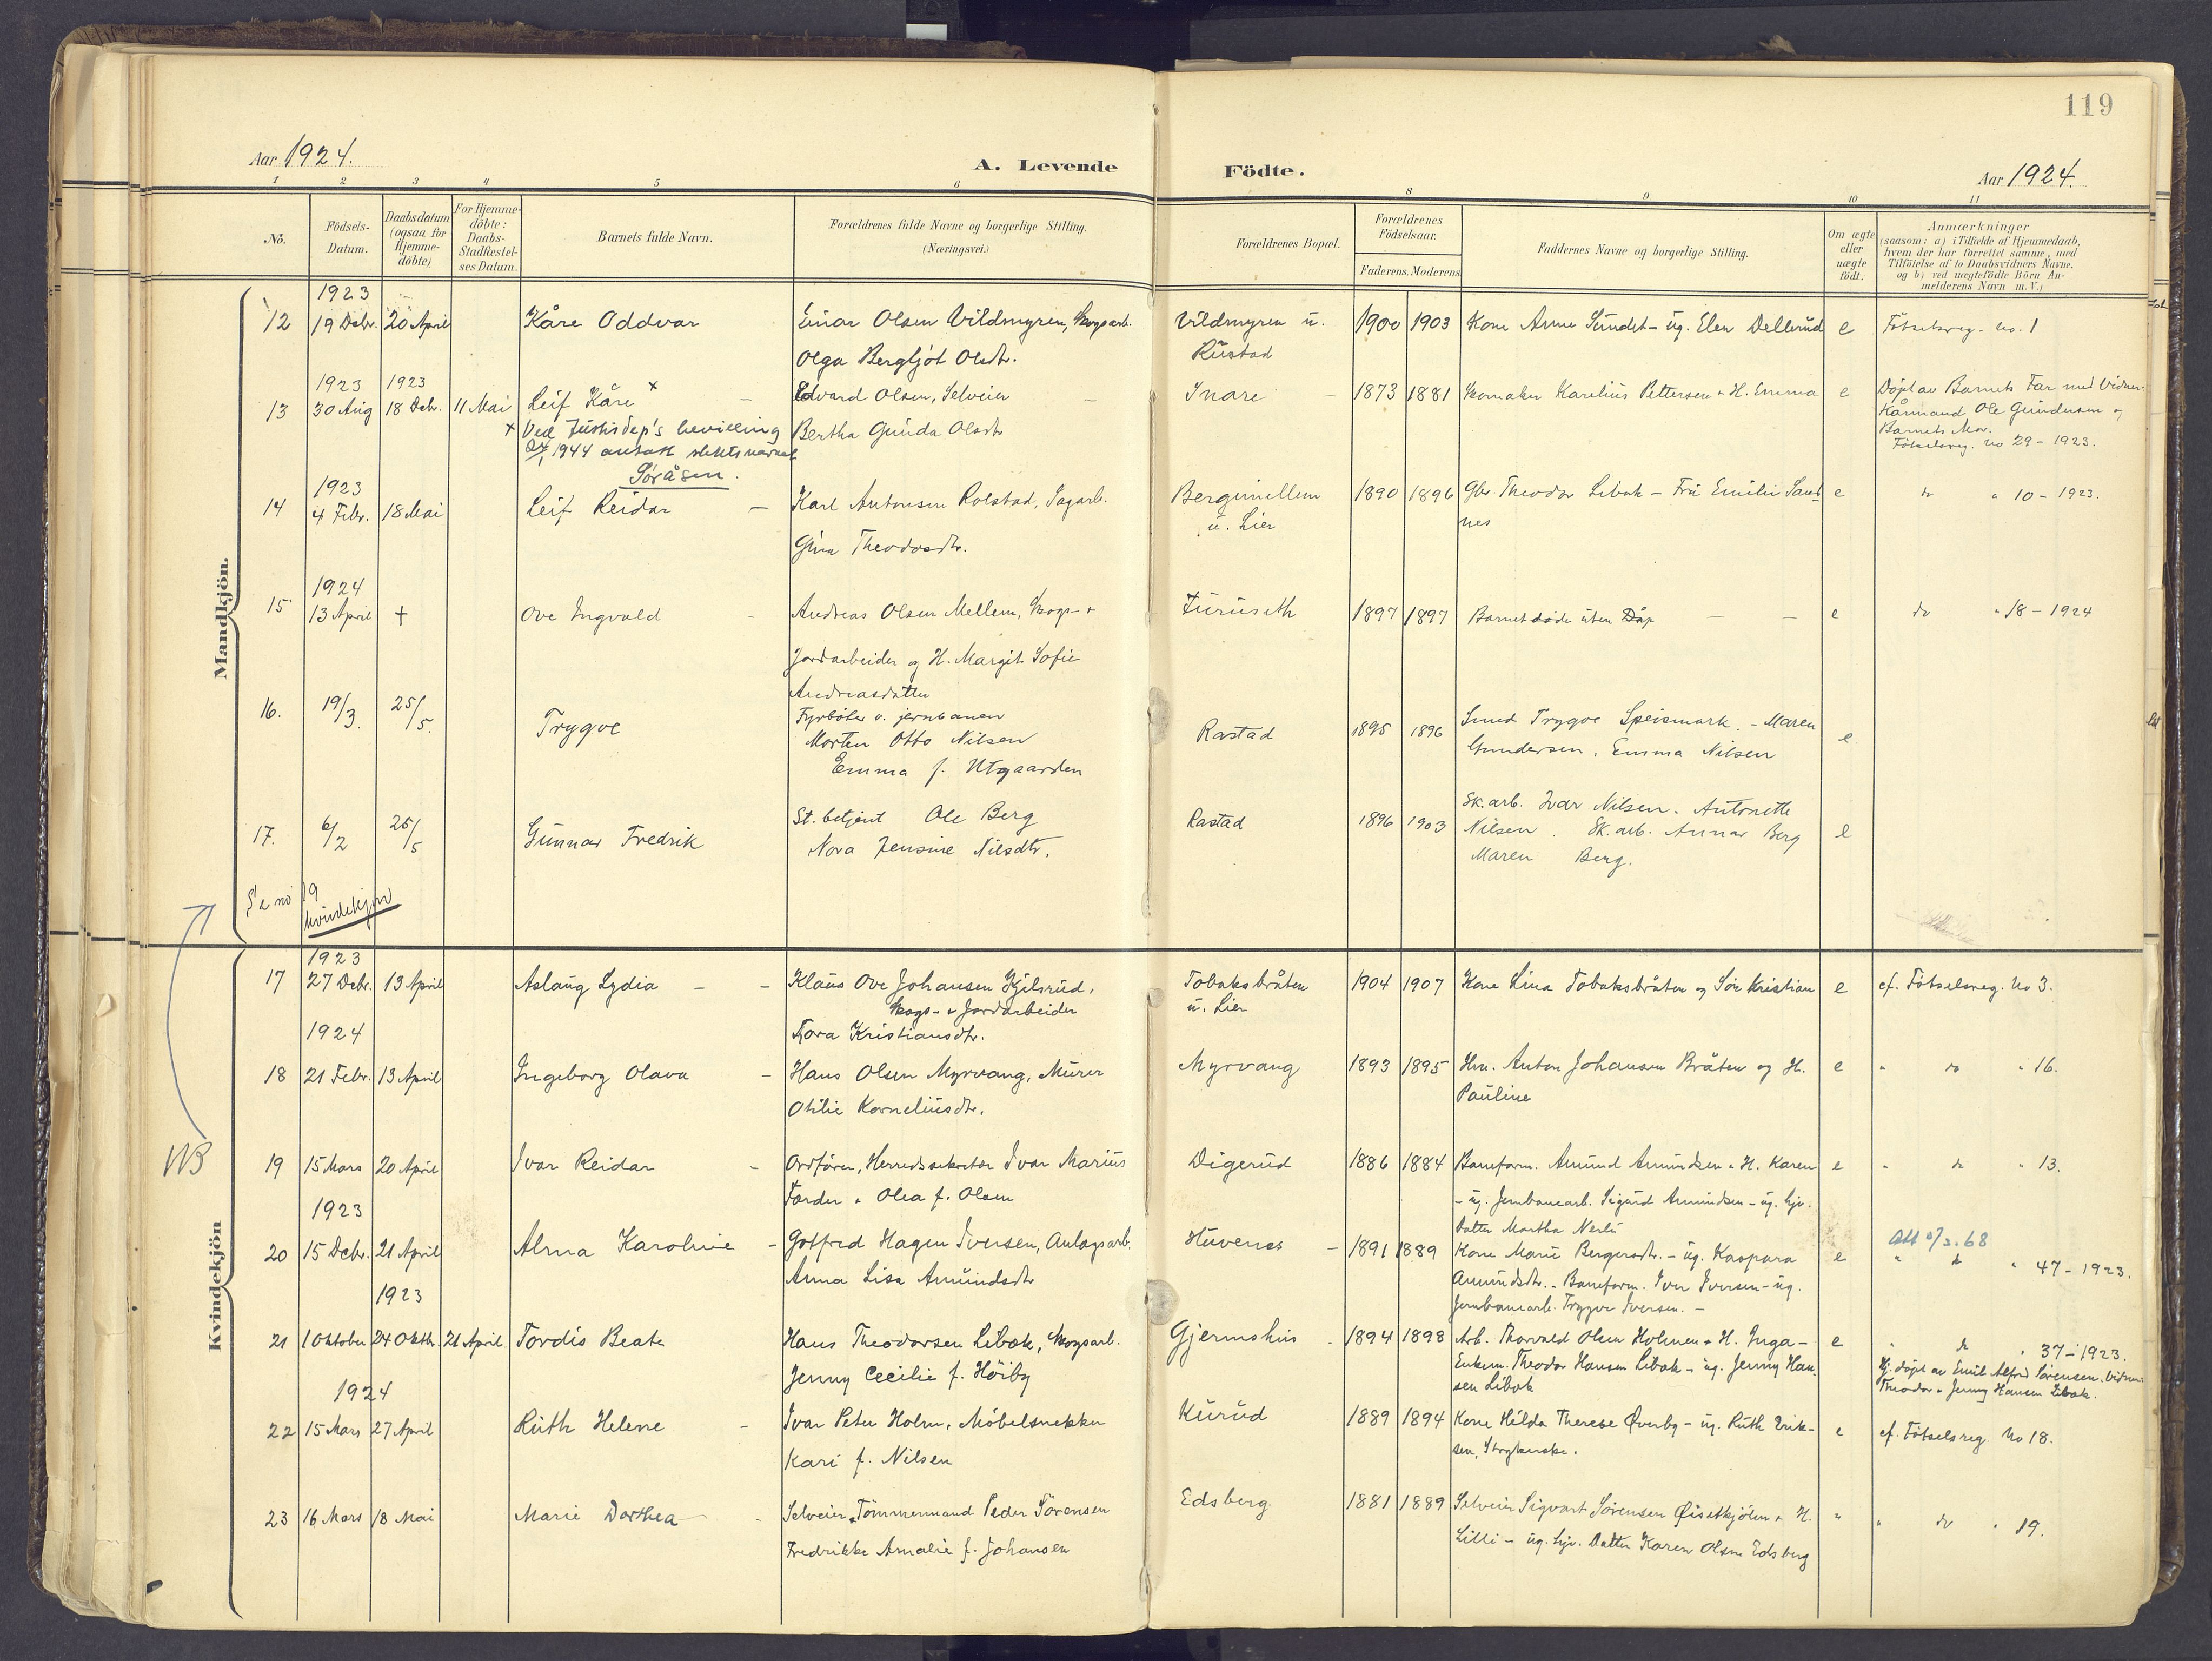 119
Aar 1924.
A. Levende Födte.
Aar 1924.
1 2 3 4 5 6 8 9 10 11
No.
Födsels-Datum.
Daabsdatum (ogsaa for Hjemme-döbte)
For Hjemme-döbte: Daabs-Stadfæstel-ses Datum.
Barnets fulde Navn.
Forældrenes fulde Navne og borgerlige Stilling.
(Næringsvei.)
Forældrenes Bopæl.
Forældrenes Födselsaar.
Faderens. Moderens
Faddernes Navne og borgerlige Stilling.
Om ægte eller uægte födt.
Anmærkninger
(saasom: a) i Tilfælde af Hjemmedaab,
hvem der har forrettet samme, med
Tilföielse af to Daabsvidners Navne.
og b) ved uægtefödte Börn An-
melderens Navn m. V.)
Mandkjön.
1923
12 19 Debr. 20 April Kåre Oddvar Einar Olsen Vildmyren, Skogsarb. Vildmyren u. 1900 1903 Kone Anne Sundet - ug. Elen Dellerud e Fötselsreg. No. 1
Olga Bergljot Olsdtr. Rustad
1923 1923
13 30 Aug 18 Debr. 11 Mai Leif Kåre x - Edvard Olsen, Selveier - Snare - 1873 1881 Skomaker Karelius Pettersen & H. Emma e Döpt av Barnets Far med Vidner:
x Ved Justisdep's bevilling Bertha Gunda Olsdtr Kårmand Ole Gundersen og
1944 antatt slektsnavnet Barnets Mor.
Söråsen. Fötselsreg. No 29 - 1923.
1923
14 4 Febr. 18 Mai Leif Reidar - Karl Antonsen Rolstad, Sagarb. Bergimellem 1890 1896 Gbr. Theodor Libak - Fru Emilie Sand- e do " 10 - 1923.
u. Lier nes
Gina Theodosdtr.
1924
15 13 April + Ove Ingvald - Andreas Olsen Mellem, Skogs- & Furuseth 1897 1897 Barnet döde uten Dåp - - e do " 18 - 1924
Jordarbeider og H. Margit Sofie
Andreasdatter
16. 19/3. 25/5. Trygve Fyrböter v. jernbanen Rastad 1895 1896 Smed Trygve Speismark. - Maren e
Morten Otto Nilsen Gundersen, Emma Nilsen
Emma f. Utgaarden
17. 6/2 25/5 Gunnar Fredrik St. betjent Ole Berg Rastad 1896 1903 Sk. arb. Ivar Nilsen. Antonette e
Nora Jensine Nilsdtr. Nilsen. Sk. arb. Annar Berg
Maren Berg.
Se no 19
kvindekjön
Kvindekjön
1923
17 27 Debr. 13 April Aslaug Lydia - - Klaus Ove Johansen Kjilsrud, Tobaksbråten 1904 1907 Kone Lina Tobaksbråten og Sön Kristian e cf. Fötselsreg. No 3.
Skogs- & Jordarbeider u. Lier
1924 Tora Kristiansdtr.
18 21 Febr. 13 April Ingeborg Olava - Hans Olsen Myrvang, Murer Myrvang 1893 1895 Hm. Anton Johansen Bråten og H. e " do " 16.
Otilie Korneliusdtr. Pauline
NB
19 15 Mars 20 April Ivar Reidar - Ordförer, Herredssekretær Ivar Marius Digerud 1886 1884 Baneform. Amund Amundsen & H. Karen e " do " 13.
Forder & Olea f. Olsen - ug. Jernbanearb. Sigurd Amundsen - ug. hjv.
1923 Datter Martha Nerli
20 15 Debr. 21 April Alma Karoline - Gotfred Hagen Iversen, Anlægsarb. Huvenes - 1891 1889 Kone Marie Bergersdtr. - ug. Kaspara e Att /3.68
Anna Lisa Amundsdtr Amundsdtr. - Baneform. Iver Iversen - ug. " do " 47 - 1923.
1923 Jernbanearb. Trygve Iversen. -
21 1 Oktober 24 Oktbr. 21 April Tordis Beate Hans Theodorsen Libak, Skogsarb. Gjermshus - 1894 1898 Arb. Thorvald Olsen Holmen & H. Inga - e " do " 37 - 1923.
Jenny Cecilie f. Höiby Enkem. Theodor Hansen Libak - ug. Jenny Han- Hj. döpt av Emil Alfred Sörensen. Vidner:
sen Libak Theodor & Jenny Hansen Libak.
1924
22 15 Mars 27 April Ruth Helene - Ivar Peter Holm, Möbelsnekker Kurud 1889 1894 Kone Hilda Therese Överby - ug. Ruth Erik- e cf. Fötselsreg No 18.
Kari f. Nilsen sen, Strykerske.
23 16 Mars 18 Mai Marie Dorthea - Selveier & Tömmermand Peder Sörensen Edsberg 1881 1889 Selveier Sigvart Sörensen Öisetkjölen & H. " " do " 19.
Fredrikke Amalie f. Johansen Lilli - ug. hjv. Datter Karen Olsen Edsberg